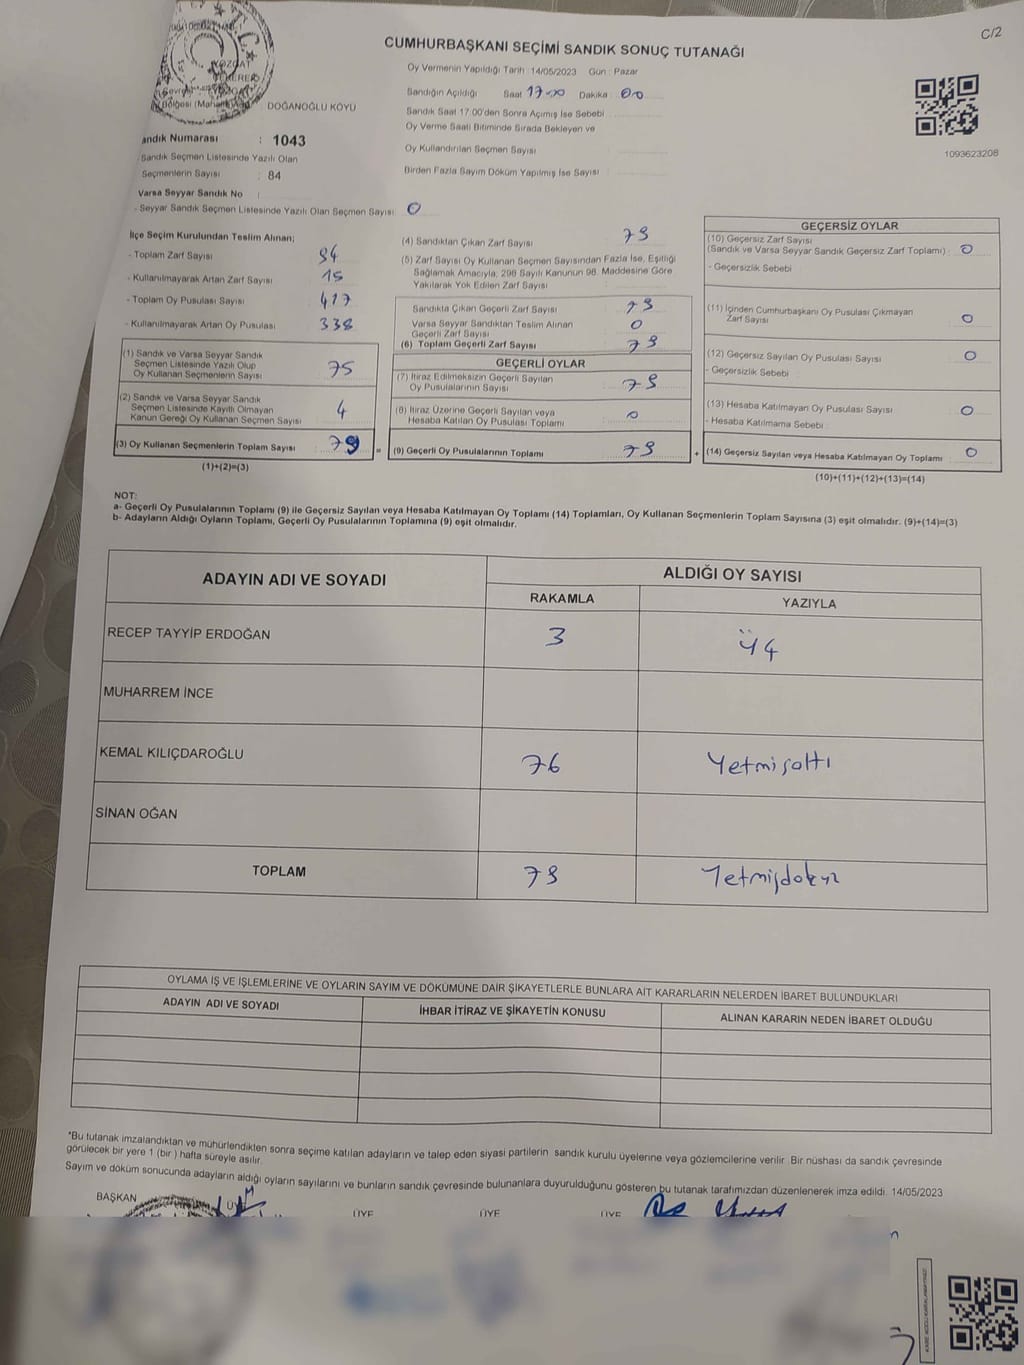 C/2
CUMHURBAŞKANI SEÇİMİ SANDIK SONUÇ TUTANAĞI
Oy Vermenin Yapıldığı Tarih : 14/05/2023 Gün : Pazar
Sandığın Açıldığı Saat 17.00 Dakika : 00
Sandık Saat 17:00'den Sonra Açımış İse Sebebi
Oy Verme Saati Bitiminde Sırada Bekleyen ve
Oy Kullandırılan Seçmen Sayısı :
Birden Fazla Sayım Döküm Yapılmış İse Sayısı :
1093623208
T.C.
YOZGAT
DOĞANOĞLU KÖYÜ
Sandık Numarası : 1043
Sandık Seçmen Listesinde Yazılı Olan
Seçmenlerin Sayısı : 84
Varsa Seyyar Sandık No :
- Seyyar Sandık Seçmen Listesinde Yazılı Olan Seçmen Sayısı : 0
İlçe Seçim Kurulundan Teslim Alınan;
- Toplam Zarf Sayısı : 94
- Kullanılmayarak Artan Zarf Sayısı : 15
- Toplam Oy Pusulası Sayısı : 417
- Kullanılmayarak Artan Oy Pusulası : 338
(1) Sandık ve Varsa Seyyar Sandık
Seçmen Listesinde Yazılı Olup
Oy Kullanan Seçmenlerin Sayısı : 75
(2) Sandık ve Varsa Seyyar Sandık
Seçmen Listesinde Kayıtlı Olmayan
Kanun Gereği Oy Kullanan Seçmen Sayısı : 4
(3) Oy Kullanan Seçmenlerin Toplam Sayısı : 79
(1)+(2)=(3)
(4) Sandıktan Çıkan Zarf Sayısı : 79
(5) Zarf Sayısı Oy Kullanan Seçmen Sayısından Fazla İse, Eşitliği
Sağlamak Amacıyla; 298 Sayılı Kanunun 98. Maddesine Göre
Yakılarak Yok Edilen Zarf Sayısı :
Sandıkta Çıkan Geçerli Zarf Sayısı : 79
Varsa Seyyar Sandıktan Teslim Alınan
Geçerli Zarf Sayısı : 0
(6) Toplam Geçerli Zarf Sayısı : 79
GEÇERLİ OYLAR
(7) İtiraz Edilmeksizin Geçerli Sayılan
Oy Pusulalarının Sayısı : 79
(8) İtiraz Üzerine Geçerli Sayılan veya
Hesaba Katılan Oy Pusulası Toplamı : 0
= (9) Geçerli Oy Pusulalarının Toplamı : 79
GEÇERSİZ OYLAR
(10) Geçersiz Zarf Sayısı
(Sandık ve Varsa Seyyar Sandık Geçersiz Zarf Toplamı) : 0
- Geçersizlik Sebebi :
(11) İçinden Cumhurbaşkanı Oy Pusulası Çıkmayan
Zarf Sayısı : 0
(12) Geçersiz Sayılan Oy Pusulası Sayısı : 0
- Geçersizlik Sebebi :
(13) Hesaba Katılmayan Oy Pusulası Sayısı : 0
- Hesaba Katılmama Sebebi :
+ (14) Geçersiz Sayılan veya Hesaba Katılmayan Oy Toplamı : 0
(10)+(11)+(12)+(13)=(14)
NOT:
a- Geçerli Oy Pusulalarının Toplamı (9) ile Geçersiz Sayılan veya Hesaba Katılmayan Oy Toplamı (14) Toplamları, Oy Kullanan Seçmenlerin Toplam Sayısına (3) eşit olmalıdır. (9)+(14)=(3)
b- Adayların Aldığı Oyların Toplamı, Geçerli Oy Pusulalarının Toplamına (9) eşit olmalıdır.
ADAYIN ADI VE SOYADI ALDIĞI OY SAYISI
RAKAMLA YAZIYLA
RECEP TAYYİP ERDOĞAN 3 Üç
MUHARREM İNCE
KEMAL KILIÇDAROĞLU 76 Yetmişaltı
SİNAN OĞAN
TOPLAM 79 Yetmişdokuz
OYLAMA İŞ VE İŞLEMLERİNE VE OYLARIN SAYIM VE DÖKÜMÜNE DAİR ŞİKAYETLERLE BUNLARA AİT KARARLARIN NELERDEN İBARET BULUNDUKLARI
ADAYIN ADI VE SOYADI İHBAR İTİRAZ VE ŞİKAYETİN KONUSU ALINAN KARARIN NEDEN İBARET OLDUĞU
*Bu tutanak imzalandıktan ve mühürlendikten sonra seçime katılan adayların ve talep eden siyasi partilerin sandık kurulu üyelerine veya gözlemcilerine verilir. Bir nüshası da sandık çevresinde
görülecek bir yere 1 (bir ) hafta süreyle asılır.
Sayım ve döküm sonucunda adayların aldığı oyların sayılarını ve bunların sandık çevresinde bulunanlara duyurulduğunu gösteren bu tutanak tarafımızdan düzenlenerek imza edildi. 14/05/2023
BAŞKAN ÜYE ÜYE ÜYE ÜYE